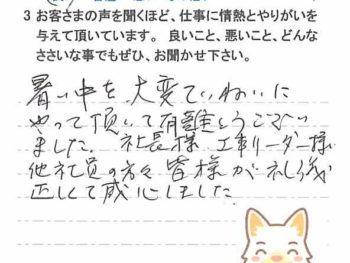 3 お客さまの声を聞くほど、仕事に情熱とやりがいを
与えて頂いています。 良いこと、悪いこと、どんな
ささいな事でもぜひ、お聞かせ下さい。
暑い中を大変ていねいに
やって頂いて有難とうござい
ました。社長様 工事リーダー様
他社員の方々 皆様が礼儀
正しくて感心しました